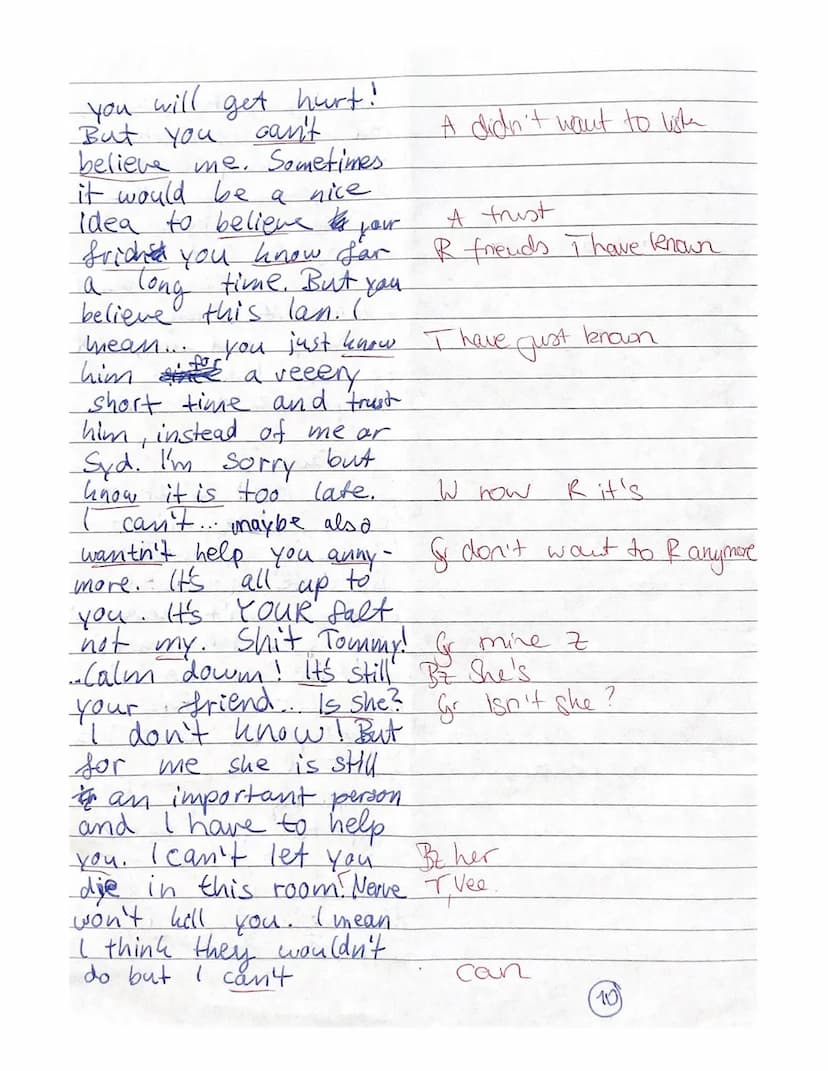 you will get hurt!
But you can't
believe me. Sometimes
it would be a nice
Idea to believe your
frichd you know far
a long time. But you
believe this Ian. I
mean... you just know
him for a veeery
short time and trust
him, instead of me or
Syd. I'm sorry but
know it is too late.
I can't... maybe also
wantn't help you anny-
more. It's all up to
you. It's YOUR falt
not my. Shit Tommy!
..Calm down! It's still
your friend... Is she?
I don't know! But
for me she is still
an important person
and I have to help
you. I can't let you
die in this room! Nerve
won't kill you. I mean
I think they wouldn't
do but I can't
A didn't want to
A trust
R friends T have known
T have just known
W now R it's
Gr don't want to R anymore
Gr mine Z
Bz She's
Gr Isn't she?
Bz her
T, Vee.
can
10